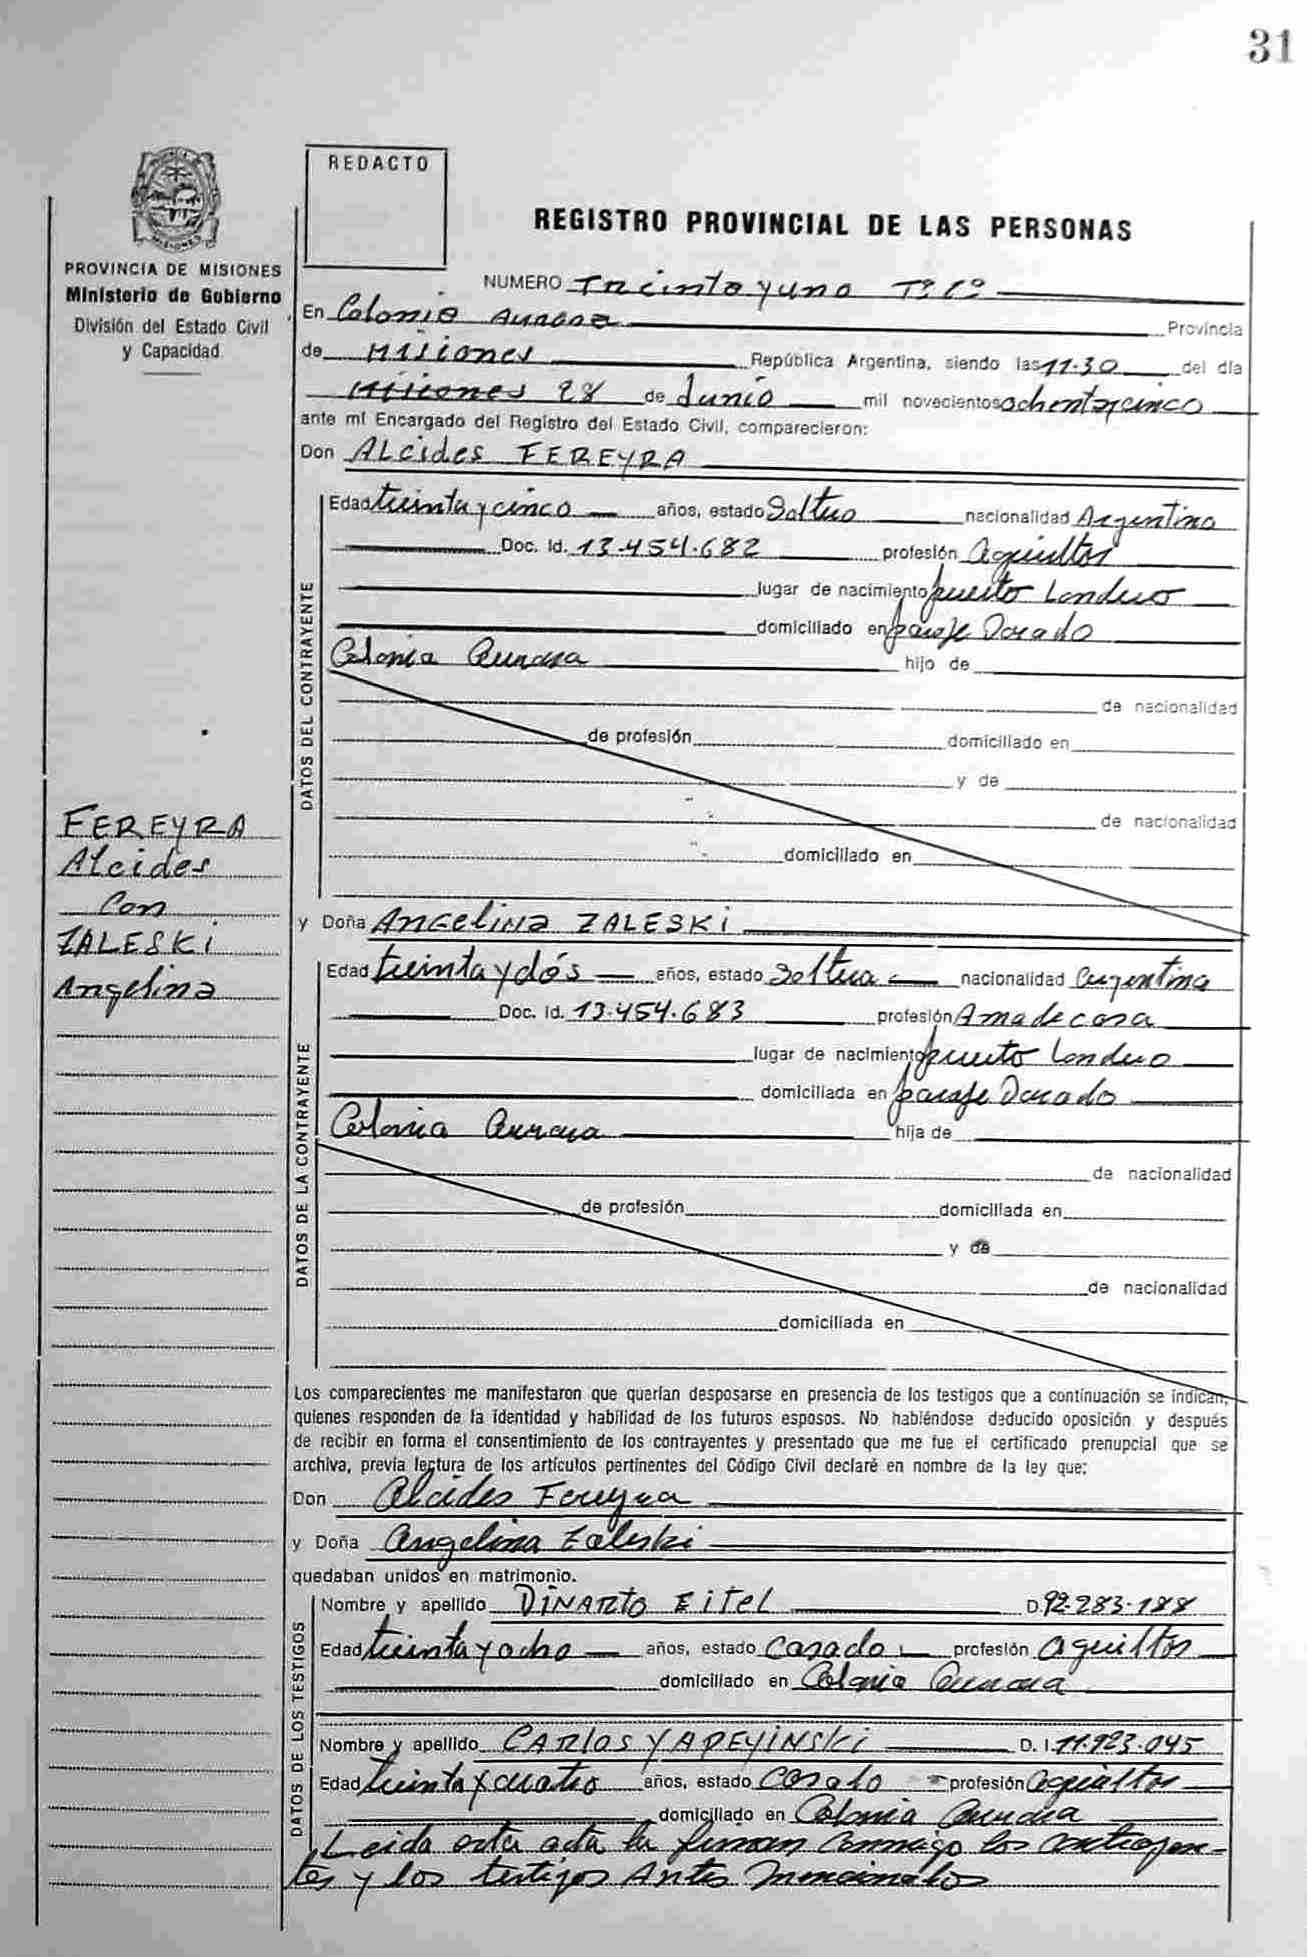 31
MISIONES
REDACTO
REGISTRO PROVINCIAL DE LAS PERSONAS
PROVINCIA DE MISIONES
Ministerio de Gobierno
División del Estado Civil
y Capacidad
NUMERO Treinta y uno Tº 1º
En Colonia Aurora Provincia
de Misiones República Argentina, siendo las 11.30 del día
Misiones 28 de Junio mil novecientos ochenta y cinco
ante mí Encargado del Registro del Estado Civil, comparecieron:
Don ALcides FEREYRA
DATOS DEL CONTRAYENTE
Edad treinta y cinco años, estado Soltero nacionalidad Argentino
Doc. Id. 13.454.682 profesión Agricultor
lugar de nacimiento puerto Londero
domiciliado en paraje Dorado
Colonia Aurora hijo de
de nacionalidad
de profesión domiciliado en
y de
de nacionalidad
domiciliado en
FEREYRA
Alcides
Con
ZALESKI
Angelina
y Doña ANGELINA ZALESKI
DATOS DE LA CONTRAYENTE
Edad treinta y dós años, estado Soltera nacionalidad Argentina
Doc. Id. 13.454.683 profesión Ama de casa
lugar de nacimiento puerto Londero
domiciliada en paraje Dorado
Colonia Aurora hija de
de nacionalidad
de profesión domiciliada en
y de
de nacionalidad
domiciliada en
Los comparecientes me manifestaron que querían desposarse en presencia de los testigos que a continuación se indican,
quienes responden de la identidad y habilidad de los futuros esposos. No habiéndose deducido oposición y después
de recibir en forma el consentimiento de los contrayentes y presentado que me fue el certificado prenupcial que se
archiva, previa lectura de los artículos pertinentes del Código Civil declaré en nombre de la ley que:
Don Alcides Fereyra
y Doña Angelina Zaleski
quedaban unidos en matrimonio.
DATOS DE LOS TESTIGOS
Nombre y apellido DINARTO EITEL D. 92.283.188
Edad treinta y ocho años, estado Casado profesión agricultor
domiciliado en Colonia Aurora
Nombre y apellido CARlos YAPEYINSKI D. I. 11.923.045
Edad treinta y cuatro años, estado Casado profesión agricultor
domiciliado en Colonia Aurora
Leida esta acta la firman Conmigo los contrayen-
tes y los testigos Antes mencionados